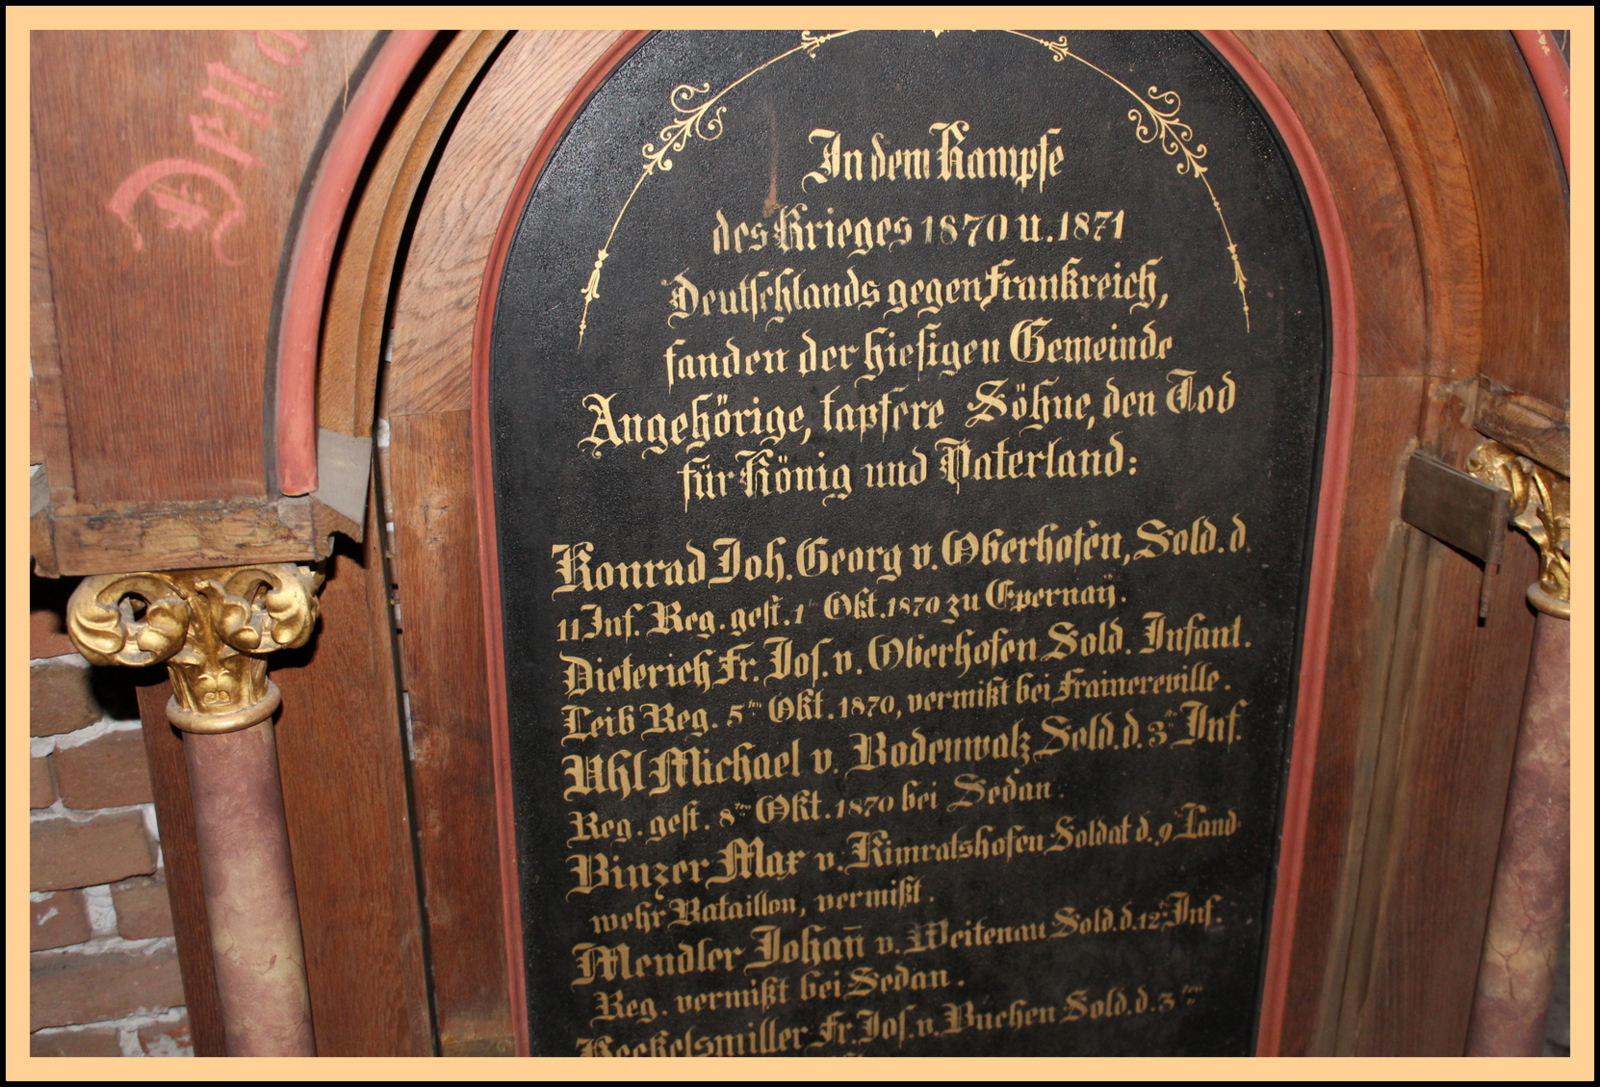 Denn
In dem Kampfe
des Krieges 1870 u. 1871
Deutschlands gegen Frankreich,
fanden der hiesigen Gemeinde
Angehörige, tapfere Söhne, den Tod
für König und Vaterland:
Konrad Joh. Georg v. Oberhofen, Sold. d.
11 Inf. Reg. gest. 1ten Okt. 1870 zu Epernaÿ.
Dieterich Fr. Jos. v. Oberhofen Sold. Infant.
Leib Reg. 5ten Okt. 1870, vermißt bei Frainereville.
Uhl Michael v. Bodenwalz Sold. d. 3ten Inf.
Reg. gest. 8ten Okt. 1870 bei Sedan.
Binzer Max v. Kimratshofen Soldat d. 9ten Land
wehr Bataillon, vermißt.
Mendler Johan̄ v. Weitenau Sold. d. 12ten Inf.
Reg. vermißt bei Sedan.
Keckelsmiller Fr. Jos. v. Buchen Sold. d. 3ten